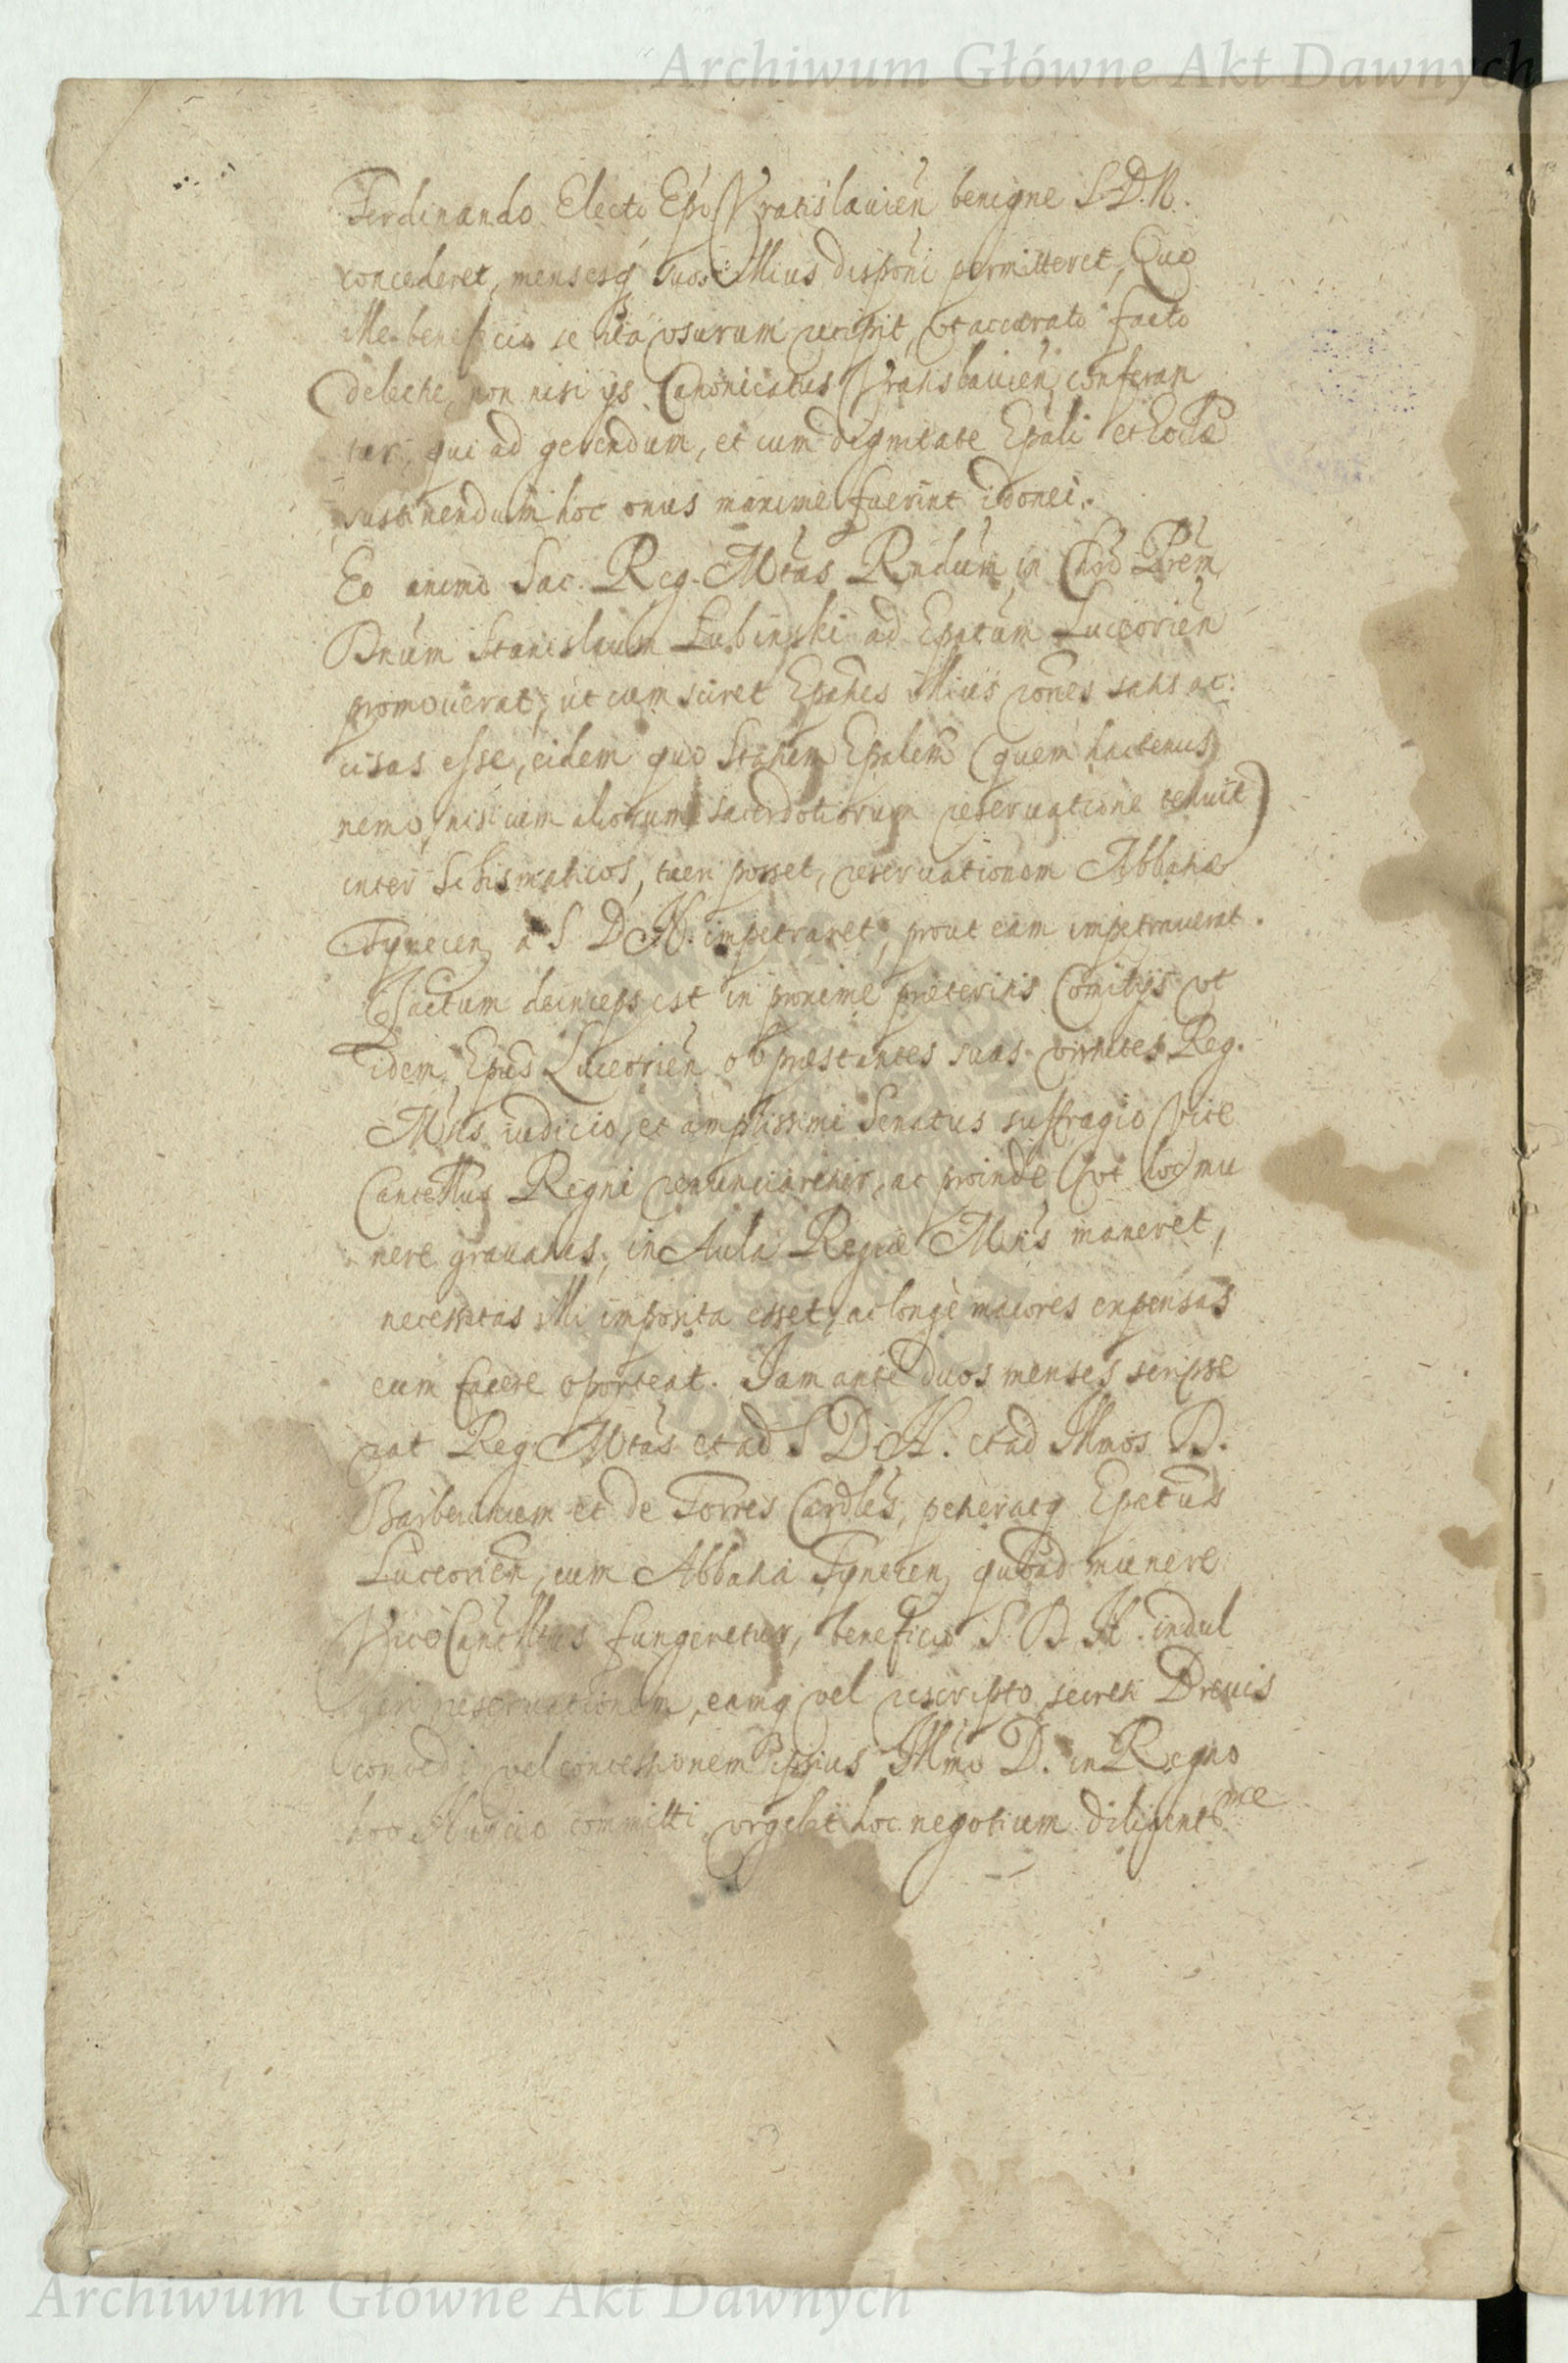 Archiwum Główne Akt Dawnych
Ferdinando Electo Epo Vratislauien benigne S. D. N.
concederet, mensesq suos illius disponi permitteret, Quo
ille beneficio se ita vsurum recipit, vt accurato facto
delectu, non nisi ijs Canonicatus Vratislauien conferan
tur, qui ad gerendum, et cum dignitate Epali et Eccla
sustinendum hoc onus maxime fuerint idonei.
Eo animo Sac. Reg. Mtas Rndum in Chro Prem
Dnum Stanislaum Lubinski ad Epatum Luceorien
promouerat, ut cum sciret Epatus illius rones satis ac:
cisas esse, eidem quo Statum Epalem (quem hactenus
nemo, nisi cum aliorum sacerdotiorum reseruatione tenuit)
inter Schismaticos, tueri posset, reseruationem Abbatiae
Tynecen a S D N. impetraret, prout eam impetrauerat.
Factum deinceps est in proxime praeteritis Comitijs vt
idem Epus Luceorien ob praestantes suas virtutes Reg.
Mtis iudicio, et amplissimi Senatus suffragio Vice
Cancellrius Regni renunciaretur, ac proinde (vt hoc mu
nere grauatus, in Aula Regiae Mtis maneret,
necessitas illi imposita esset, ac longe maiores expensas
eum facere oporteat. Jam ante duos menses scripse
rat Reg Mtas et ad S D N. et ad Illmos D.
Barberinum et de Torres Cardles, petieratq Epatus
Luceorien, cum Abbatia Tynecen, quoad munere
Vice Cancellrius fungeretur, beneficio S. D. N. indul
geri reseruationem, eamq vel rescripto secreti Breuis
concedi, vel concessionem ipsius Illmo D. in Regno
hoc Nuncio committi, vrgebit hoc negotium diligentme
Archiwum Główne Akt Dawnych